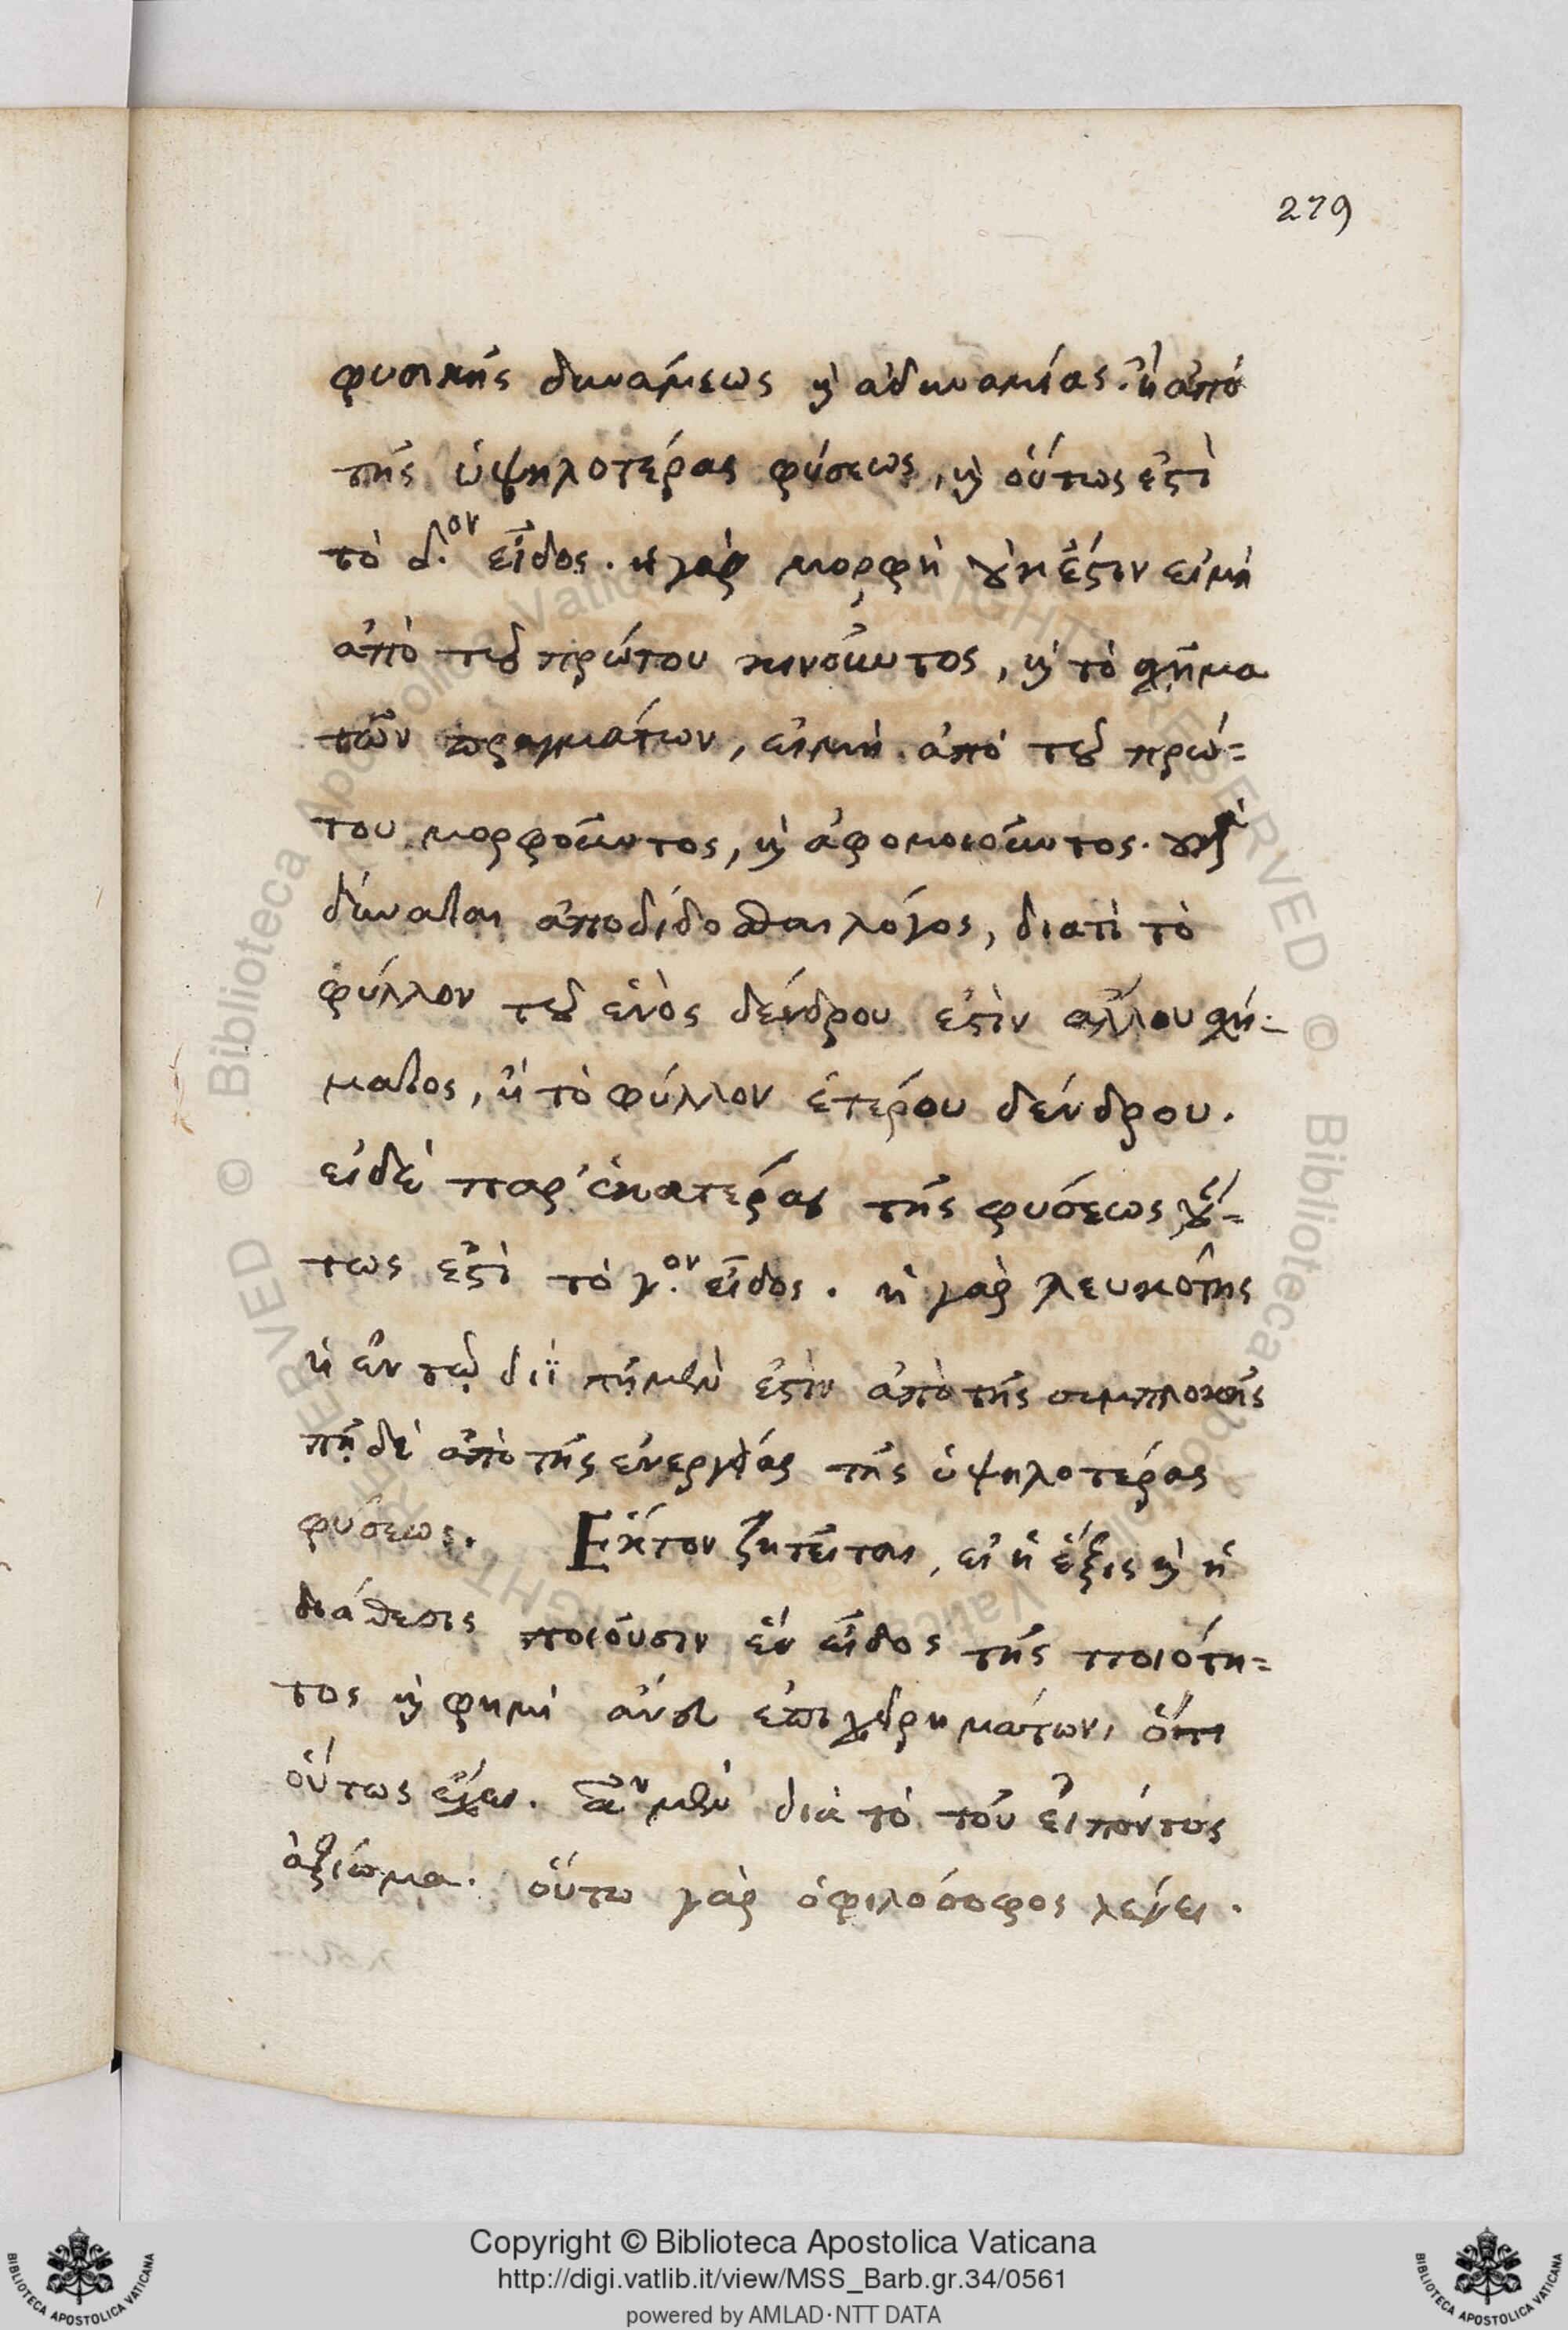 279
φυσικῆς δυνάμεως κ̀ ἀδυναμίας. ἢ ἀπὸ
τῆς ὑψηλοτέρας φύσεως, κ̀ οὕτως ἐστὶ
τὸ δ.ον εἶδος. ἡ γὰρ μορφὴ οὐκ ἔστιν εἰμὴ
ἀπὸ τοῦ πρώτου κινοῦντος, κ̀ τὸ σχῆμα
τῶν πραγμάτων, εἰμὴ ἀπὸ τοῦ πρώ=
του μορφοῦντος, κ̀ ἀφομοιοῦντος.
δύναται ἀποδίδοσθαι λόγος, διατὶ τὸ
φύλλον τοῦ ἑνὸς δένδρου ἐστὶν ἄλλου σχή-
ματος, ἢ τὸ φύλλον ἑτέρου δένδρου.
εἰδὲ παρ' ἑκατέρας τῆς φύσεως οὕ=
τως ἐστὶ τὸ γ.ον εἶδος. ἡ γὰρ λευκότης
ἡ ἐν τῷ διϊ πῆ μὲν ἐστὶν ἀπὸ τῆς συμπλοκῆς
πῆ δὲ ἀπὸ τῆς ἐνεργείας τῆς ὑψηλοτέρας
φύσεως. Ἕκτον ζητεῖται, εἰ ἡ ἕξις κ̀ ἡ
διάθεσις ποιοῦσιν ἓν εἶδος τῆς ποιότη=
τος κ̀ φημὶ ἄνευ ἐπιχειρημάτων, ὅτι
οὕτως ἔχει. αον μὲν διὰ τὸ τοῦ εἰπόντος
ἀξίωμα. οὕτω γὰρ ὁ φιλόσοφος λέγει.
© Biblioteca Apostolica Vaticana
ALL RIGHTS RESERVED
Copyright © Biblioteca Apostolica Vaticana
http://digi.vatlib.it/view/MSS_Barb.gr.34/0561
powered by AMLAD·NTT DATA
BIBLIOTECA APOSTOLICA VATICANA
BIBLIOTECA APOSTOLICA VATICANA